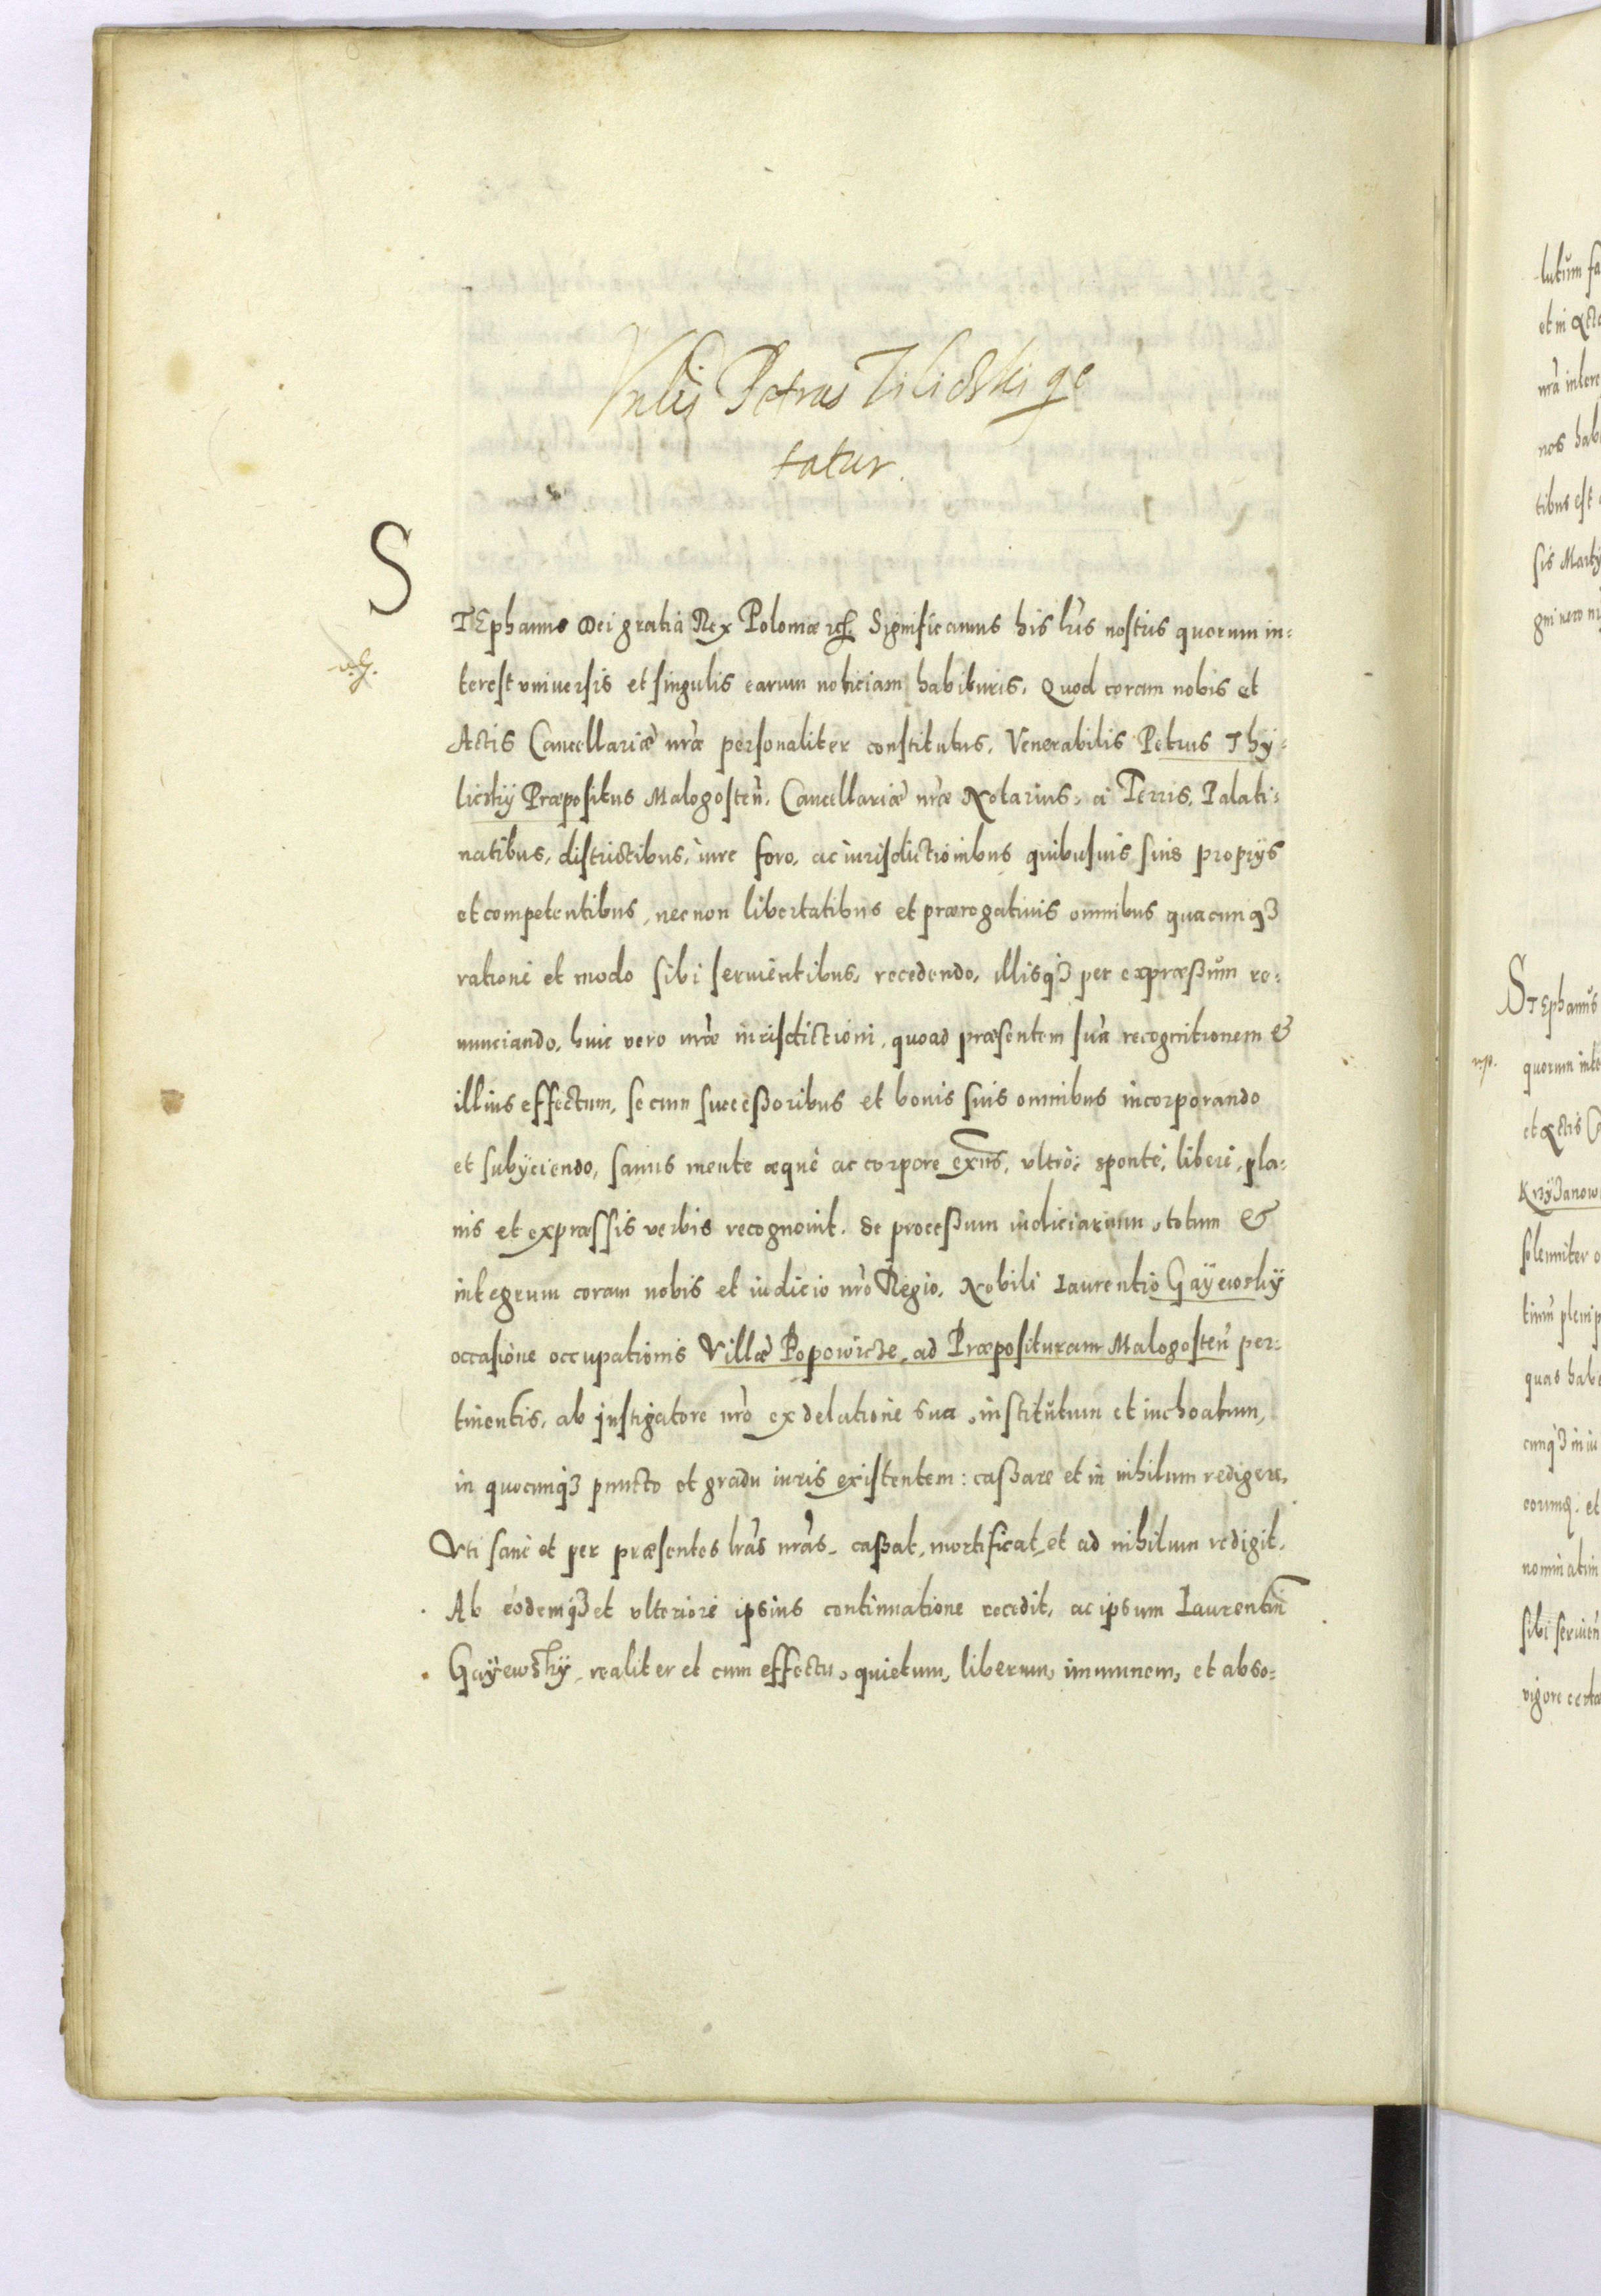 Vnlis Petrus Tilicski qe
tatur.
STEphanus Dei gratia Rex Poloniæ etc. Significamus his lr̃is nostris quorum in=
terest vniuersis et singulis earum noticiam habituris, Quod coram nobis et
Actis Cancellariæ nr̃æ personaliter constitutus, Venerabilis Petrus Thy=
liczkÿ Præpositus Malogosteñ. Cancellariæ nr̃æ Notarius, a Terris, Palati=
natibus, districtibus, iure foro, ac iurisdictionibus quibusuis suis proprÿs
et competentibus, necnon libertatibus et prærogatiuis omnibus quacunqȝ
rationè et modo sibi seruientibus, recedendo, illisqȝ per expræßům re=
nunciando, huic vero nr̃æ iurisdictioni, quoad præsentem suã recognitionem &
illius effectum, se cum succeßoribus et bonis suis omnibus incorporando
et subÿciendo, sanus mente æquè ac corpore ex̃ns, vltrò, spontè, liberè, pla=
nis et expræssis verbis recognouit. Se proceßum iudiciarium, totum &
integrum coram nobis et iudicio nr̃o Regio, Nobili Laurentio Gaÿewskÿ
occasione occupationis Villæ Popowicze, ad Præposituram Malogosteñ per=
tinentis, ab instigatore nr̃o ex delatione sua, institůtum et inchoatum,
in quocunqȝ puncto et gradu iuris existentem: caßare et in nihilum redigere,
Vti sanè et per præsentes lr̃as nr̃as, caßat, mortificat, et ad nihilum redigit,
Ab eodemqȝ et vlteriore ipsius continuatione recedit, ac ipsum Laurentiũ
Gaÿewskÿ, realiter et cum effectu, quietum, liberum, immunem, et abso=
lutům fa
et in Acta
nr̃a intere
nos hab
tibus est
sis Martÿ
gni vero nr̃
STEphanus
quorum inte
et Actis C
Krzÿżanow
solemniter
tinũ plenip
quas habe
cunqȝ in iu
eorumq. et
nominatim
sibi seruien
vigore certæ